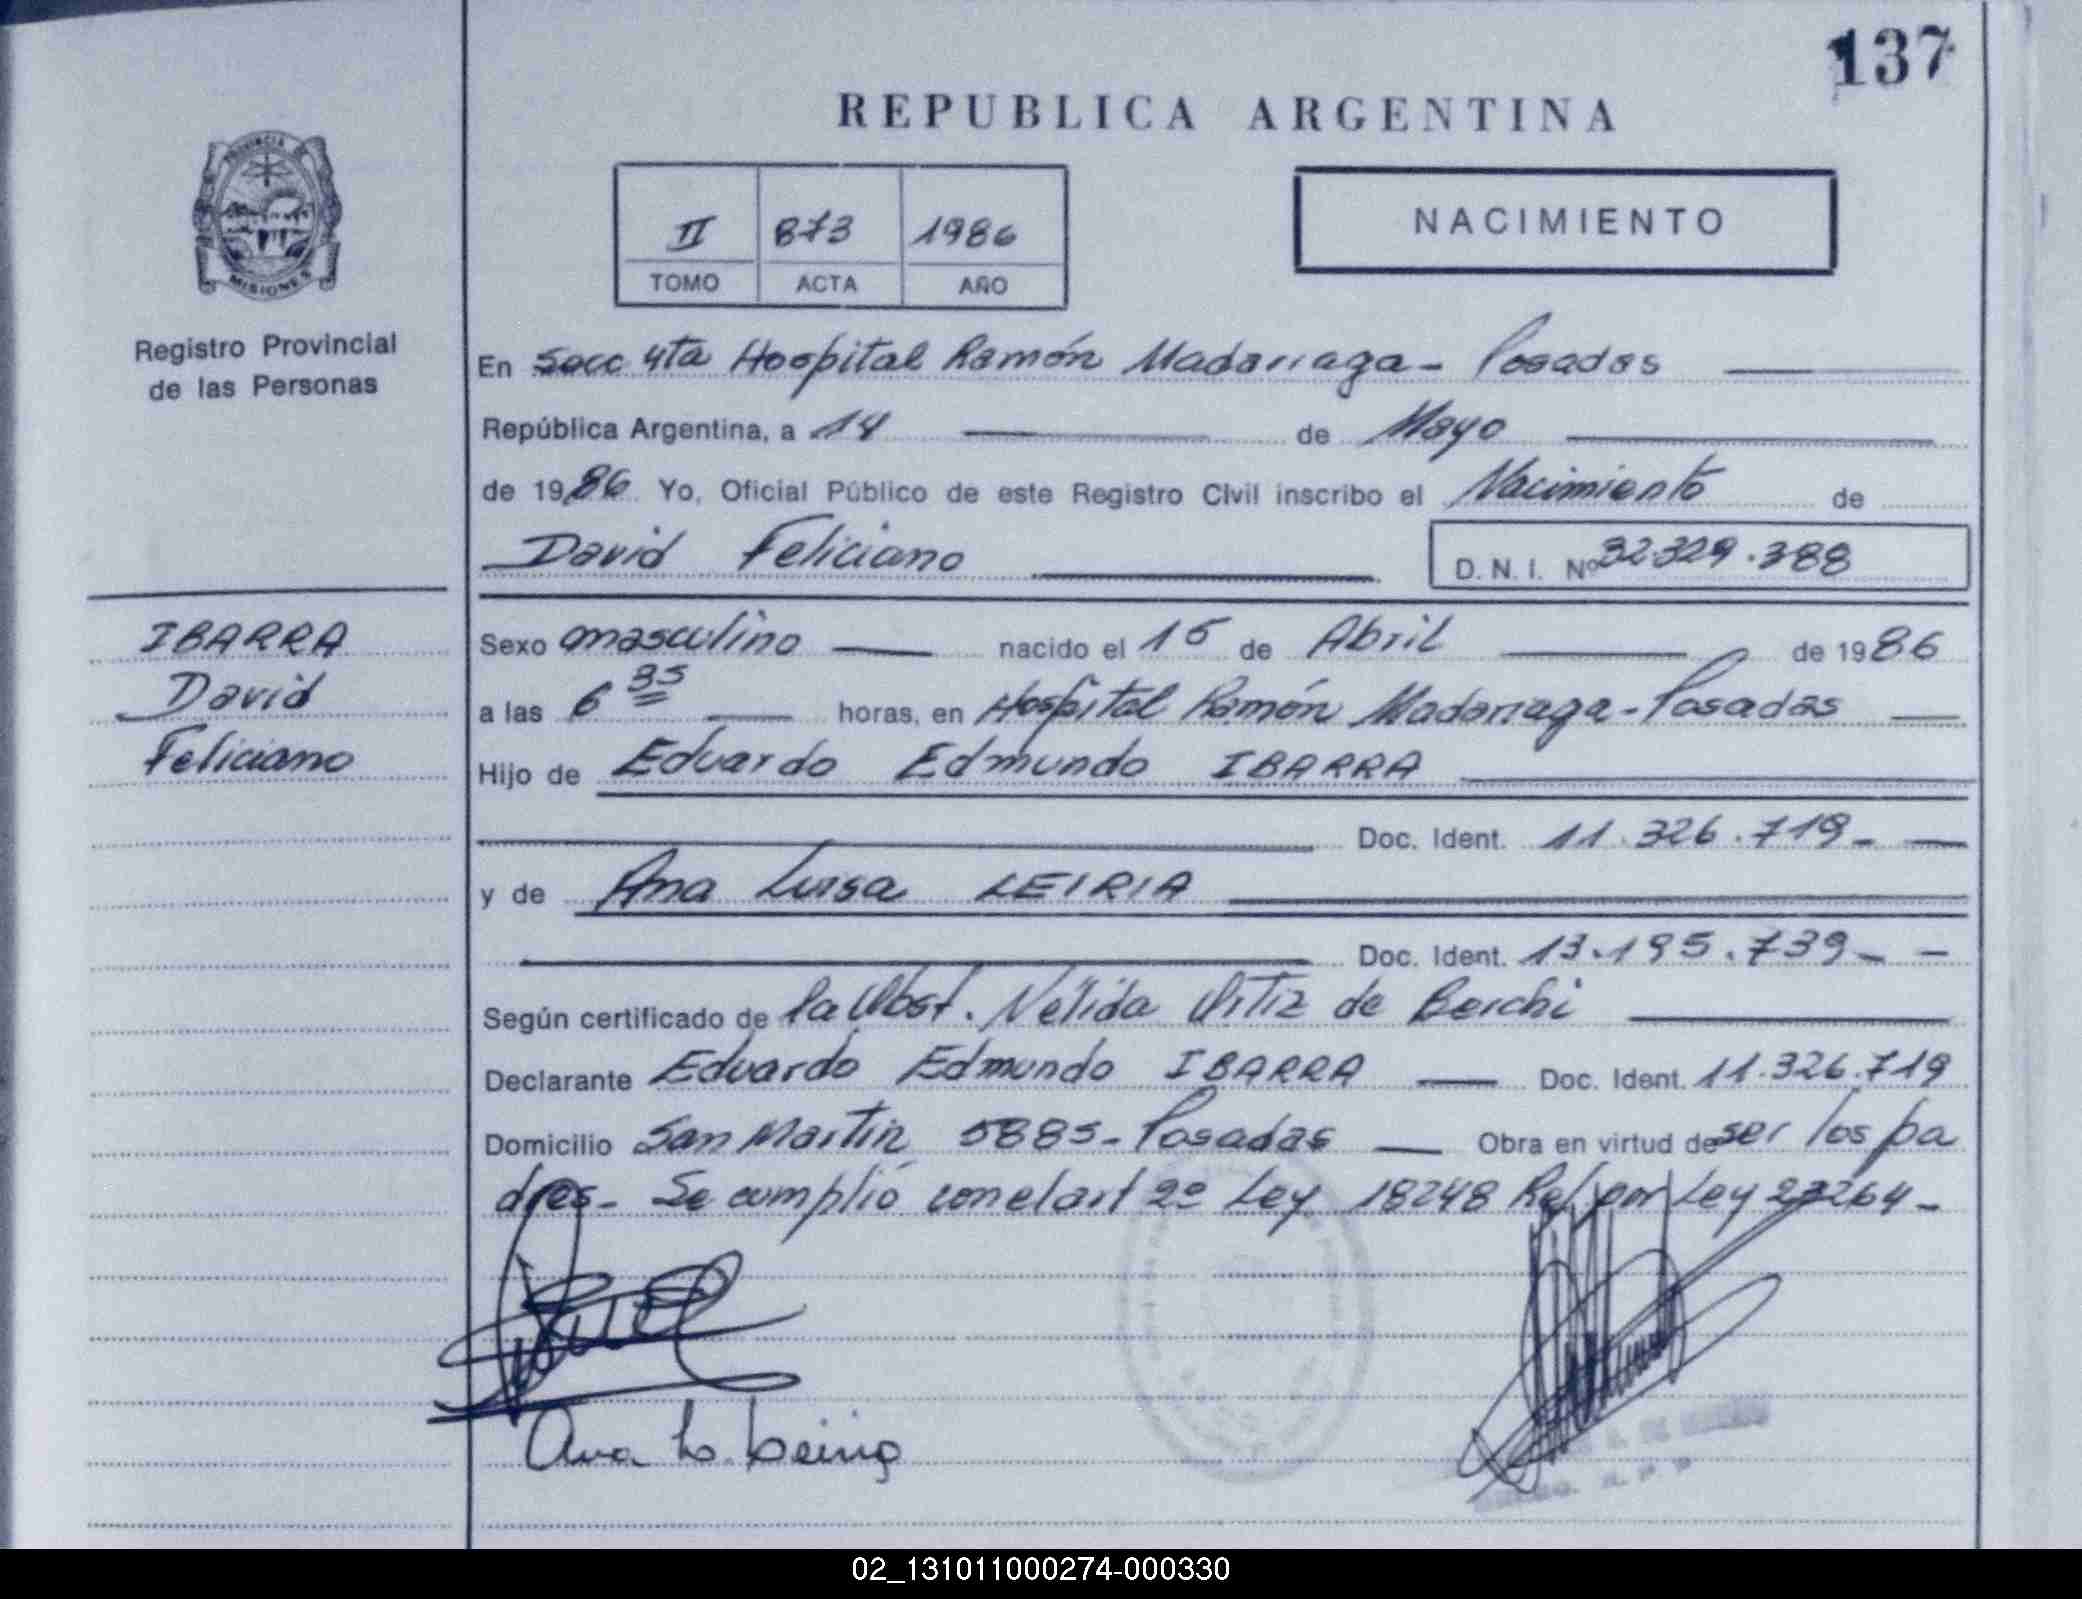 137
REPUBLICA ARGENTINA
PROVINCIA DE
MISIONES
II 873 1986
TOMO ACTA AÑO
NACIMIENTO
Registro Provincial
de las Personas
En Secc 4ta Hospital Ramón Madariaga - Posadas
República Argentina, a 14 de Mayo
de 1986 Yo, Oficial Público de este Registro Civil inscribo el Nacimiento de
David Feliciano D. N. I. Nº 32.329.388
IBARRA
David
Feliciano
Sexo masculino nacido el 15 de Abril de 1986
a las 6 35 horas, en Hospital Ramón Madariaga - Posadas
Hijo de Eduardo Edmundo IBARRA
Doc. Ident. 11.326.719 -
y de Ana Luisa LEIRIA
Doc. Ident. 13.195.739 -
Según certificado de la Obst. Nélida Ortiz de Berchi
Declarante Eduardo Edmundo IBARRA Doc. Ident. 11.326.719
Domicilio San Martin 5885 - Posadas Obra en virtud de ser los pa
dres - Se cumplió con el art 2º Ley 18248 Ref por Ley 23264 -
Ana L. Leiria
02_131011000274-000330